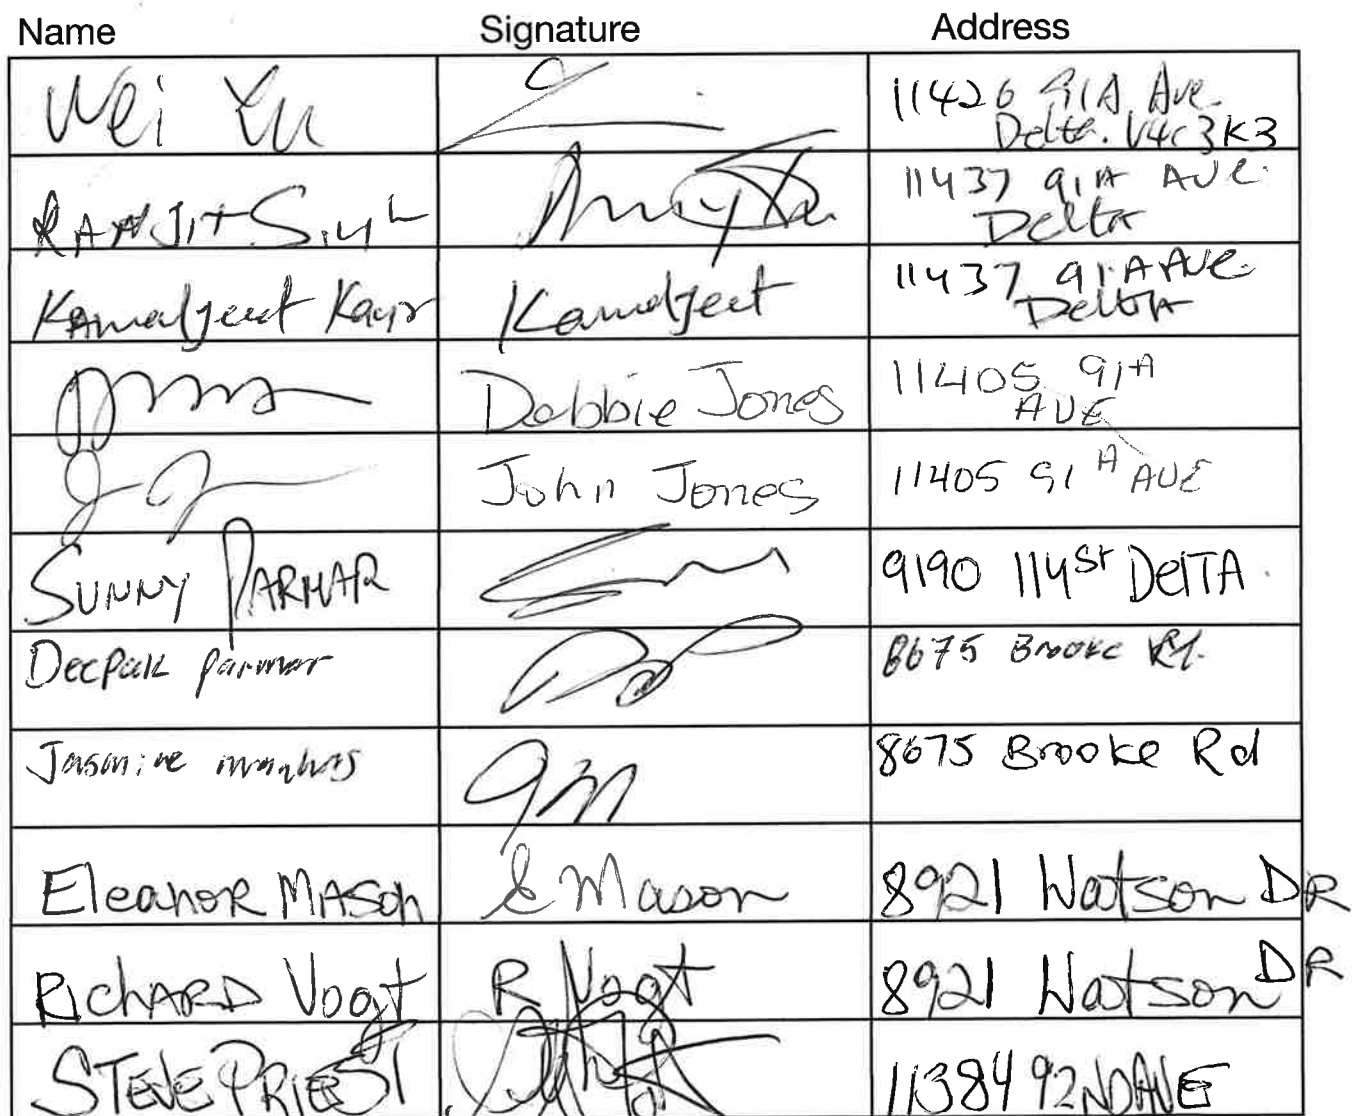 Name Signature Address
Wei Yu 11426 91A Ave.
Delta. V4C3K3
RANJIT SINGH 11437 91A AVE.
Delta
Kamaljeet Kaur Kamaljeet 11437 91A AVE.
Delta
Debbie Jones 11405 91A
AVE
John Jones 11405 91A AVE
SUNNY PARMAR 9190 114St DelTA.
Deepak parmar 8675 Brooke Rd.
Jasmine 8675 Brooke Rd
Eleanor MASon E Mason 8921 Watson DR
RichARD Vogt R Vogt 8921 Watson DR
STEVE PRIEST 11384 92ND AVE